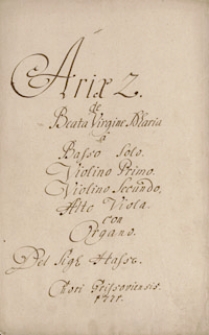 Ariæ 2.
de
Beata Virgine Maria
à
Basso Solo.
Violino Primo.
Violino Secundo,
Alto Viola
con
Organo.
Del Sigl Hasse.
Chori Grissoviensis.